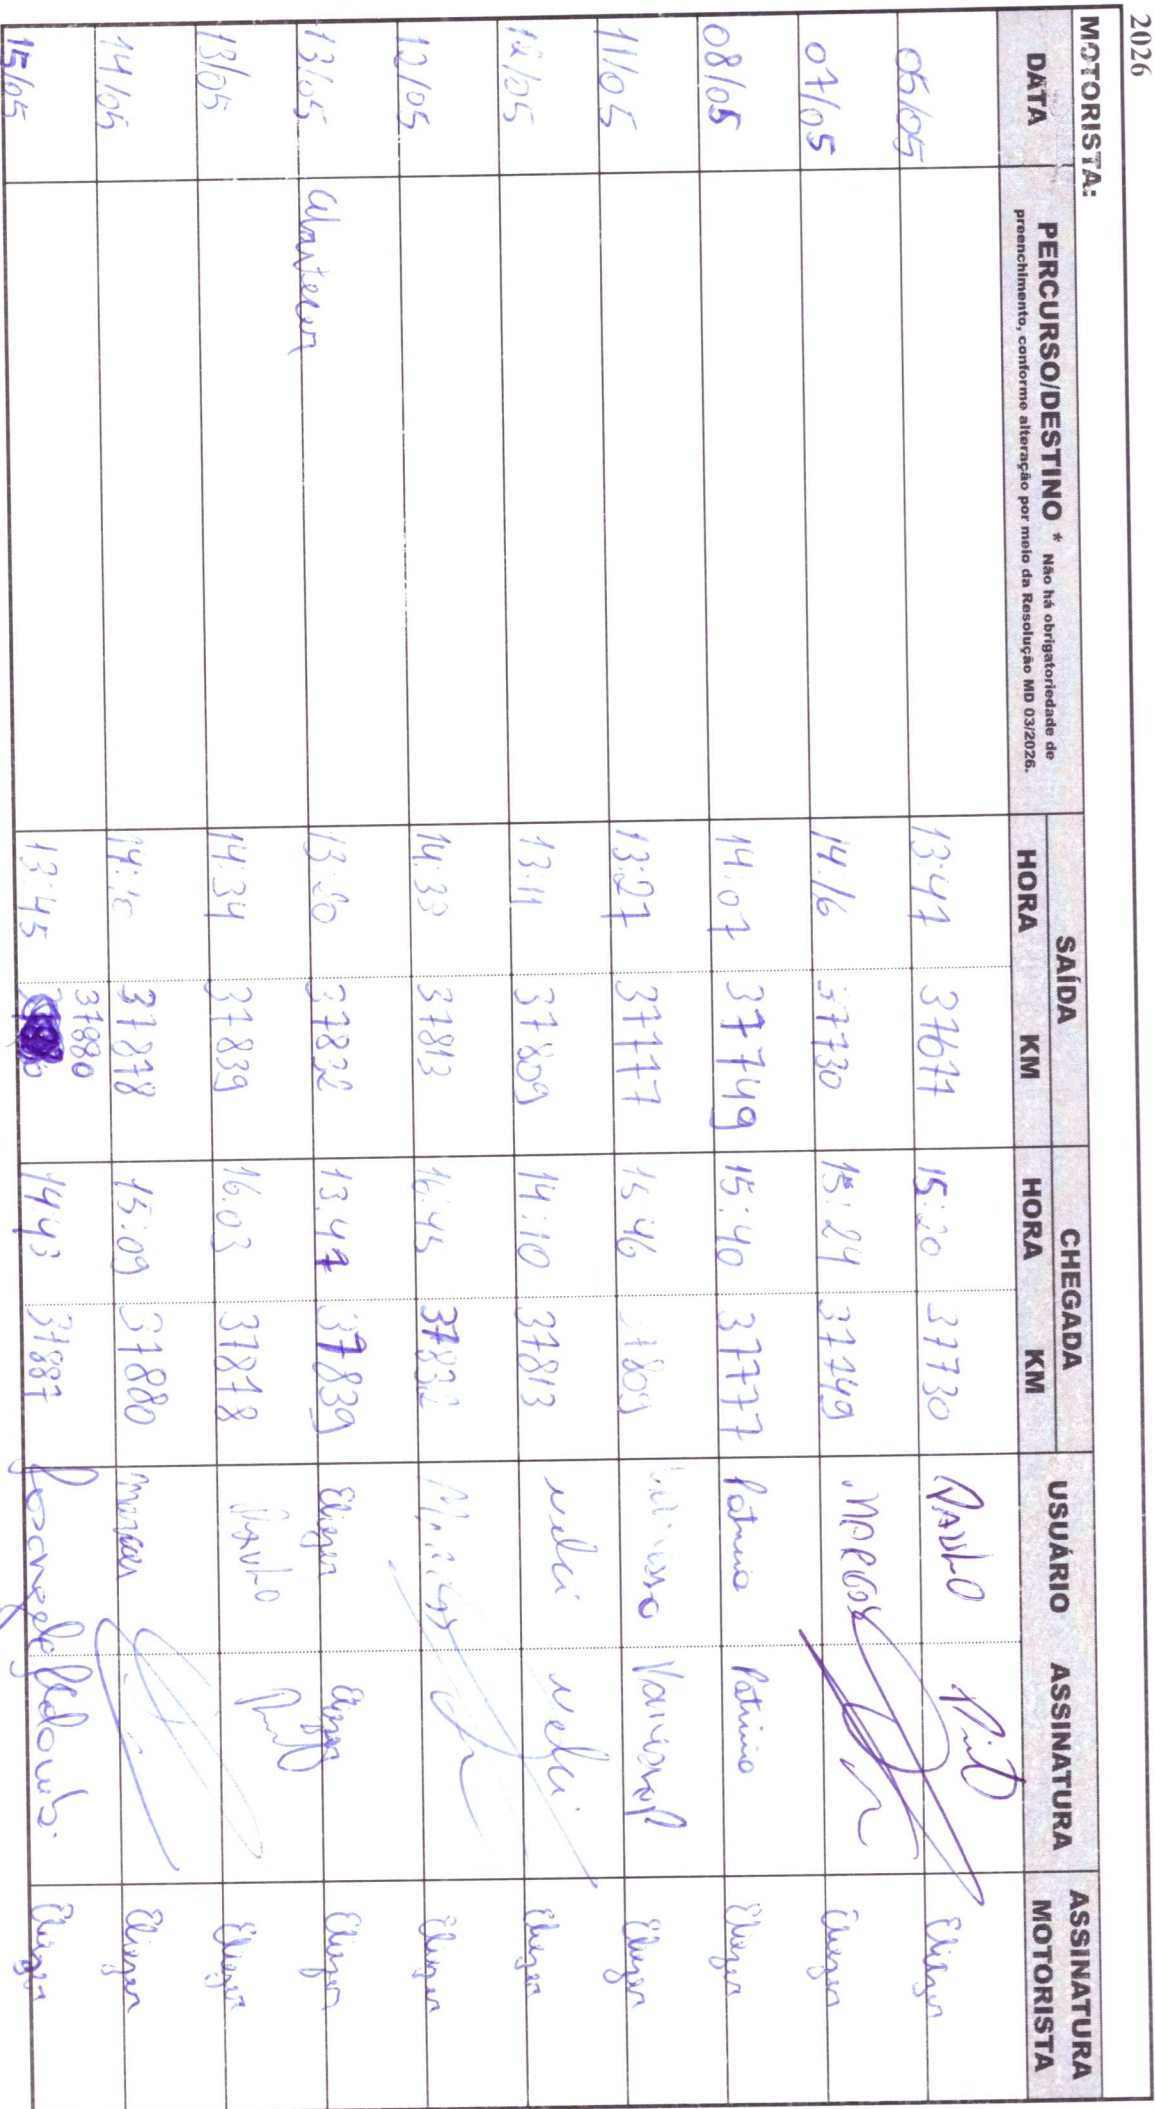 2026
MOTORISTA:
DATA PERCURSO/DESTINO * Não há obrigatoriedade de preenchimento, conforme alteração por meio da Resolução MD 03/2026. SAÍDA HORA KM CHEGADA HORA KM USUÁRIO ASSINATURA ASSINATURA MOTORISTA
05/05 13:47 37677 15:20 37730 PAULO Eliezer
07/05 14:16 37730 15:24 37749 MARCOS Eliezer
08/05 14:07 37749 15:40 37777 Patricia Patricia Eliezer
11/05 13:27 37777 15:46 37809 Vanessa Eliezer
12/05 13:11 37809 14:10 37813 Nelci Nelci Eliezer
12/05 14:33 37813 16:45 37832 Eliezer
13/05 13:20 37832 13:47 37839 Eliezer Eliezer Eliezer
13/05 14:34 37839 16:03 37878 PAULO Eliezer
14/05 37878 15:09 37880 Marcos Eliezer
15/05 13:45 37880 14:43 37887 Rosangela Eliezer